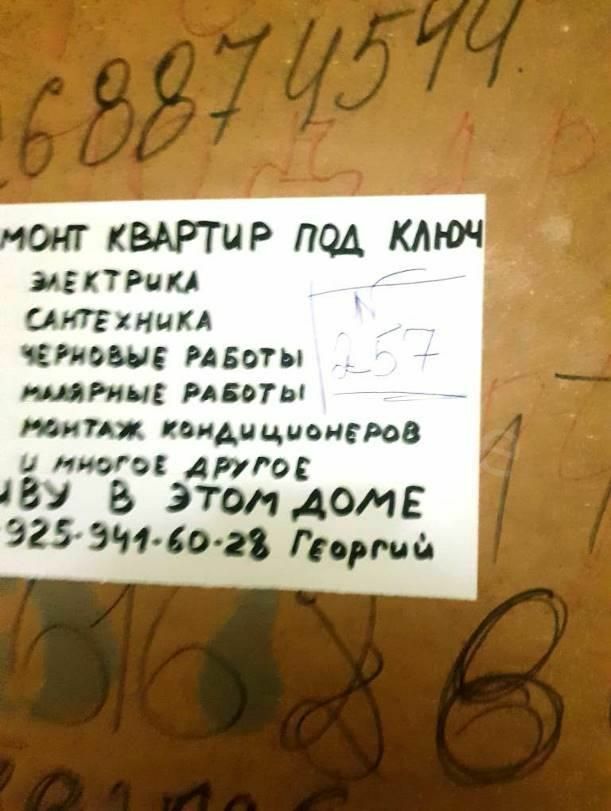 688874544
МОНТ КВАРТИР ПОД КЛЮЧ
ЭЛЕКТРИКА
САНТЕХНИКА
ЧЕРНОВЫЕ РАБОТЫ
МАЛЯРНЫЕ РАБОТЫ
N
257
МОНТАЖ КОНДИЦИОНЕРОВ
И МНОГОЕ ДРУГОЕ
ИВУ В ЭТОМ ДОМЕ
925-941-60-28 Георгий